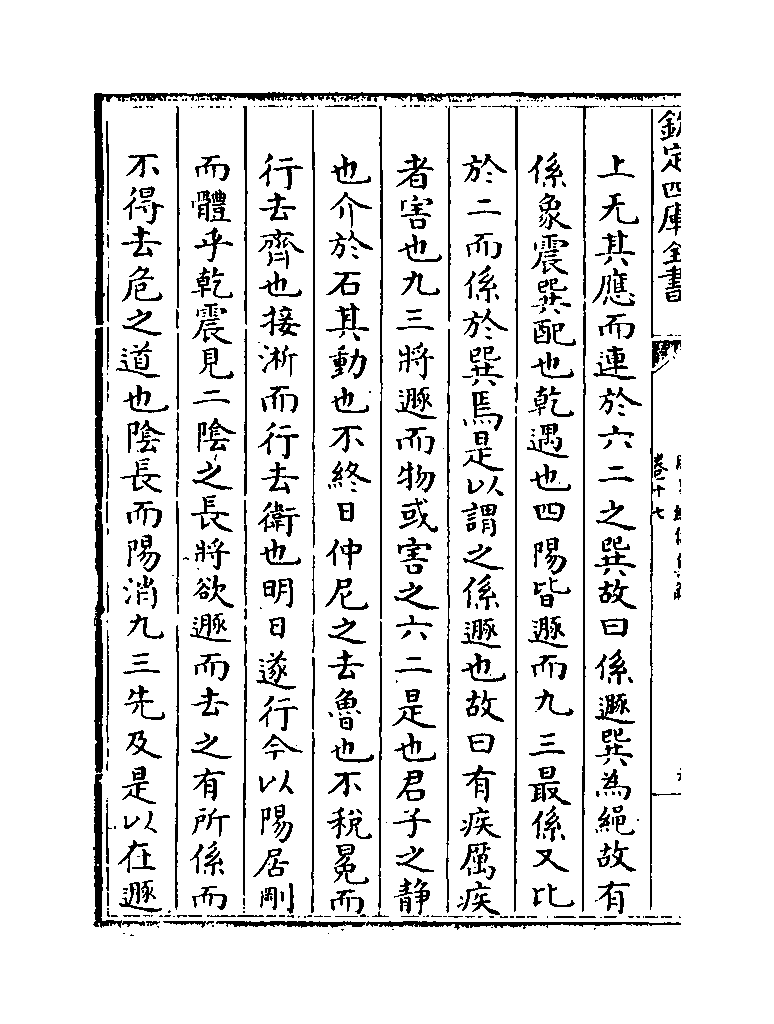 欽定四庫全書
卷十七
上无其應而連於六二之巽故曰係遯巽為繩故有
係象震巽配也乾遇也四陽皆遯而九三最係又比
於二而係於巽焉是以謂之係遯也故曰有疾厲疾
者害也九三將遯而物或害之六二是也君子之静
也介於石其動也不終日仲尼之去魯也不稅冕而
行去齊也接淅而行去衛也明日遂行今以陽居剛
而體乎乾震見二陰之長將欲遯而去之有所係而
不得去危之道也陰長而陽消九三先及是以在遯